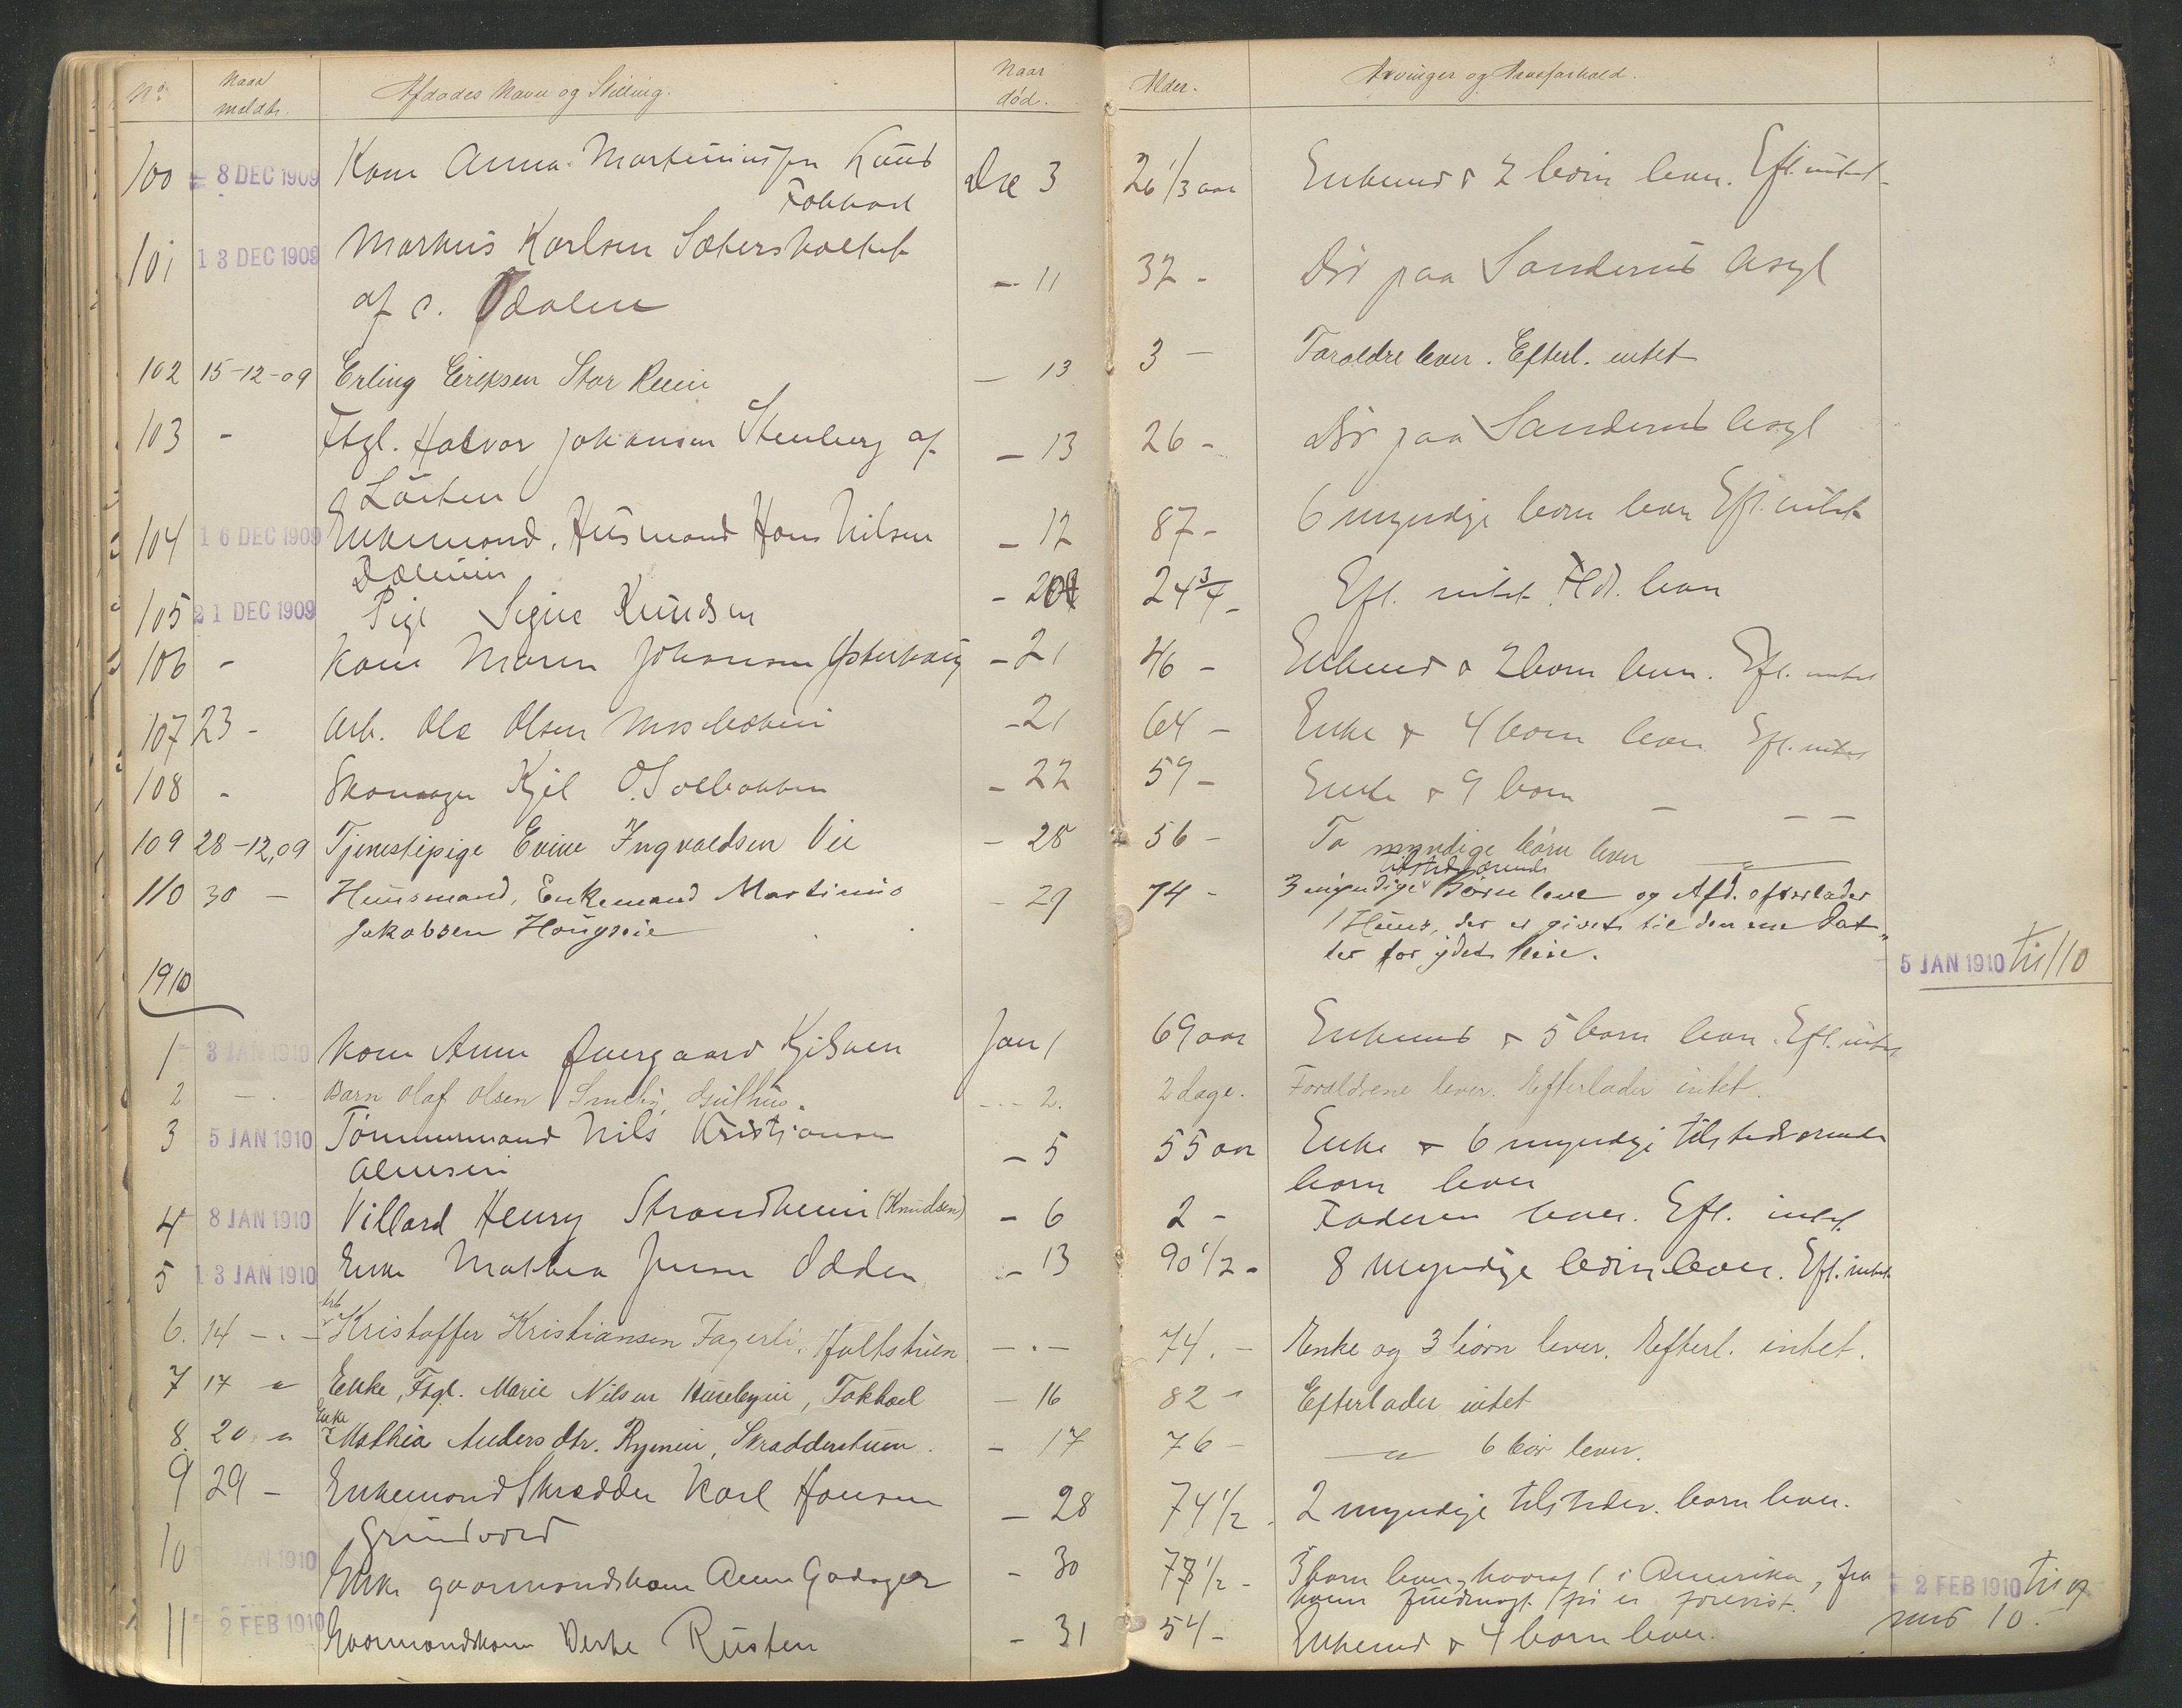 No. Naar meldt. Afdødes Navn og Stilling. Naar død. Alder. Arvinger og Arveforhold.
100 - 8 DEC 1909 Kone Anna Martinius Lund Dec 3 26 1/3 aar Enkemd & 2 børn lever. Efl. intet
101 13 DEC 1909 Markus Karlsen Sætersholtet
af s. Odalen - 11 32 - Død paa Sanderud Asyl
102 15-12-09 Erling Eriksen Stor Reni - 13 3 - Foraldre lever. Efterl. intet
103 - Ftgl. Halvor Johansen Stenberg af - 13 26 - Død paa Sanderud Asyl
Löiten
104 16 DEC 1909 Enkemand, Husmand Hans Nilsen - 12 87 - 6 myndige børn lever Efl. intet
105 21 DEC 1909 Pige Signe Knudsen - 20 24 3/4 - Efl. intet Fldr. lever
106 - Kone Maren Johansen - 21 46 - Enkemd & 2 børn lever. Efl. intet
107 23 - Arb. Ole Olsen - 21 64 - Enke & 4 børn lever Efl. intet
108 - Skomager Kjel O. Solbakken - 22 59 - Enke & 9 børn - - -
109 28-12,09 Tjenestepige Eline Ingvaldsen Vie - 28 56 - To myndige børn lever — " —
tilstedværende
110 30 - Huusmand, Enkemand Martinus - 29 74 - 3 myndige Börn lever og Afd. efterlader
Jakobsen Hougseie 1 Huus, der er givet til den ene Dat-
ter for ydet leie.
5 JAN 1910 til 110
1910
1 - 3 JAN 1910 Kone Anne Overgaard Kjelsven Jan 1 69 aar Enkemd & 5 børn lever. Efl. intet
2 - . - Barn Olaf Olsen Smeby, - . - 2. 2 dage. Foraldrene lever. Efterlader intet.
3 - 5 JAN 1910 Tömmermand Nils Kristiansen - 5 55 aar Enke & 6 myndige tilstedværende
Almseie børn lever
4 - 8 JAN 1910 Villard Henry Strandheim (Knudsen) - 6 2 - Faderen lever. Efl. intet
5 13 JAN 1910 Enke Mathea Jensen Odden - 13 90 1/2 - 8 myndige börn lever. Efl. intet
Arb.
6. 14 - . - Kristoffer Kristiansen Fagerli, - . - 74. - Enke og 3 börn lever. Efterl. intet.
7 17 " Enke, Ftgl. Marie Nilsen, Fokhol - 16 82 - Efterlader intet
Enke
8. 20 " Mathia Anders dtr. Rynnin, Skradderstuen. - 17 76 - — " — 6 bör lever.
9 29 - Enkemand Skrædder Karl Hansen - 28 74 1/2 - 2 myndige tilstedev. børn lever.
Grindvold
10 JAN 1910 Enke gaarmandskone Anne Godager - 30 77 1/2 - 3 børn lever, hvoraf 1 i Amerika, fra
hvem fuldmagt er forevist.
- 2 FEB 1910 til og
med 10.
11 - 2 FEB 1910 Gaarmandskone Berthe Rusten - 31 54 - Enkemd & 4 børn lever.